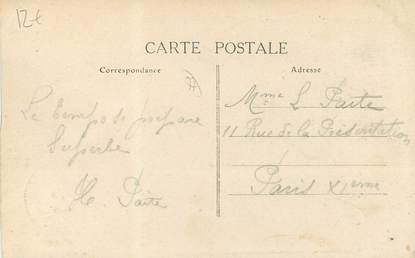 12€
CARTE POSTALE
Correspondance
Adresse
Le temps se prépare
Superbe
H. Paite
Mme L Paite
11 Rue de la Présentation
Paris XIeme